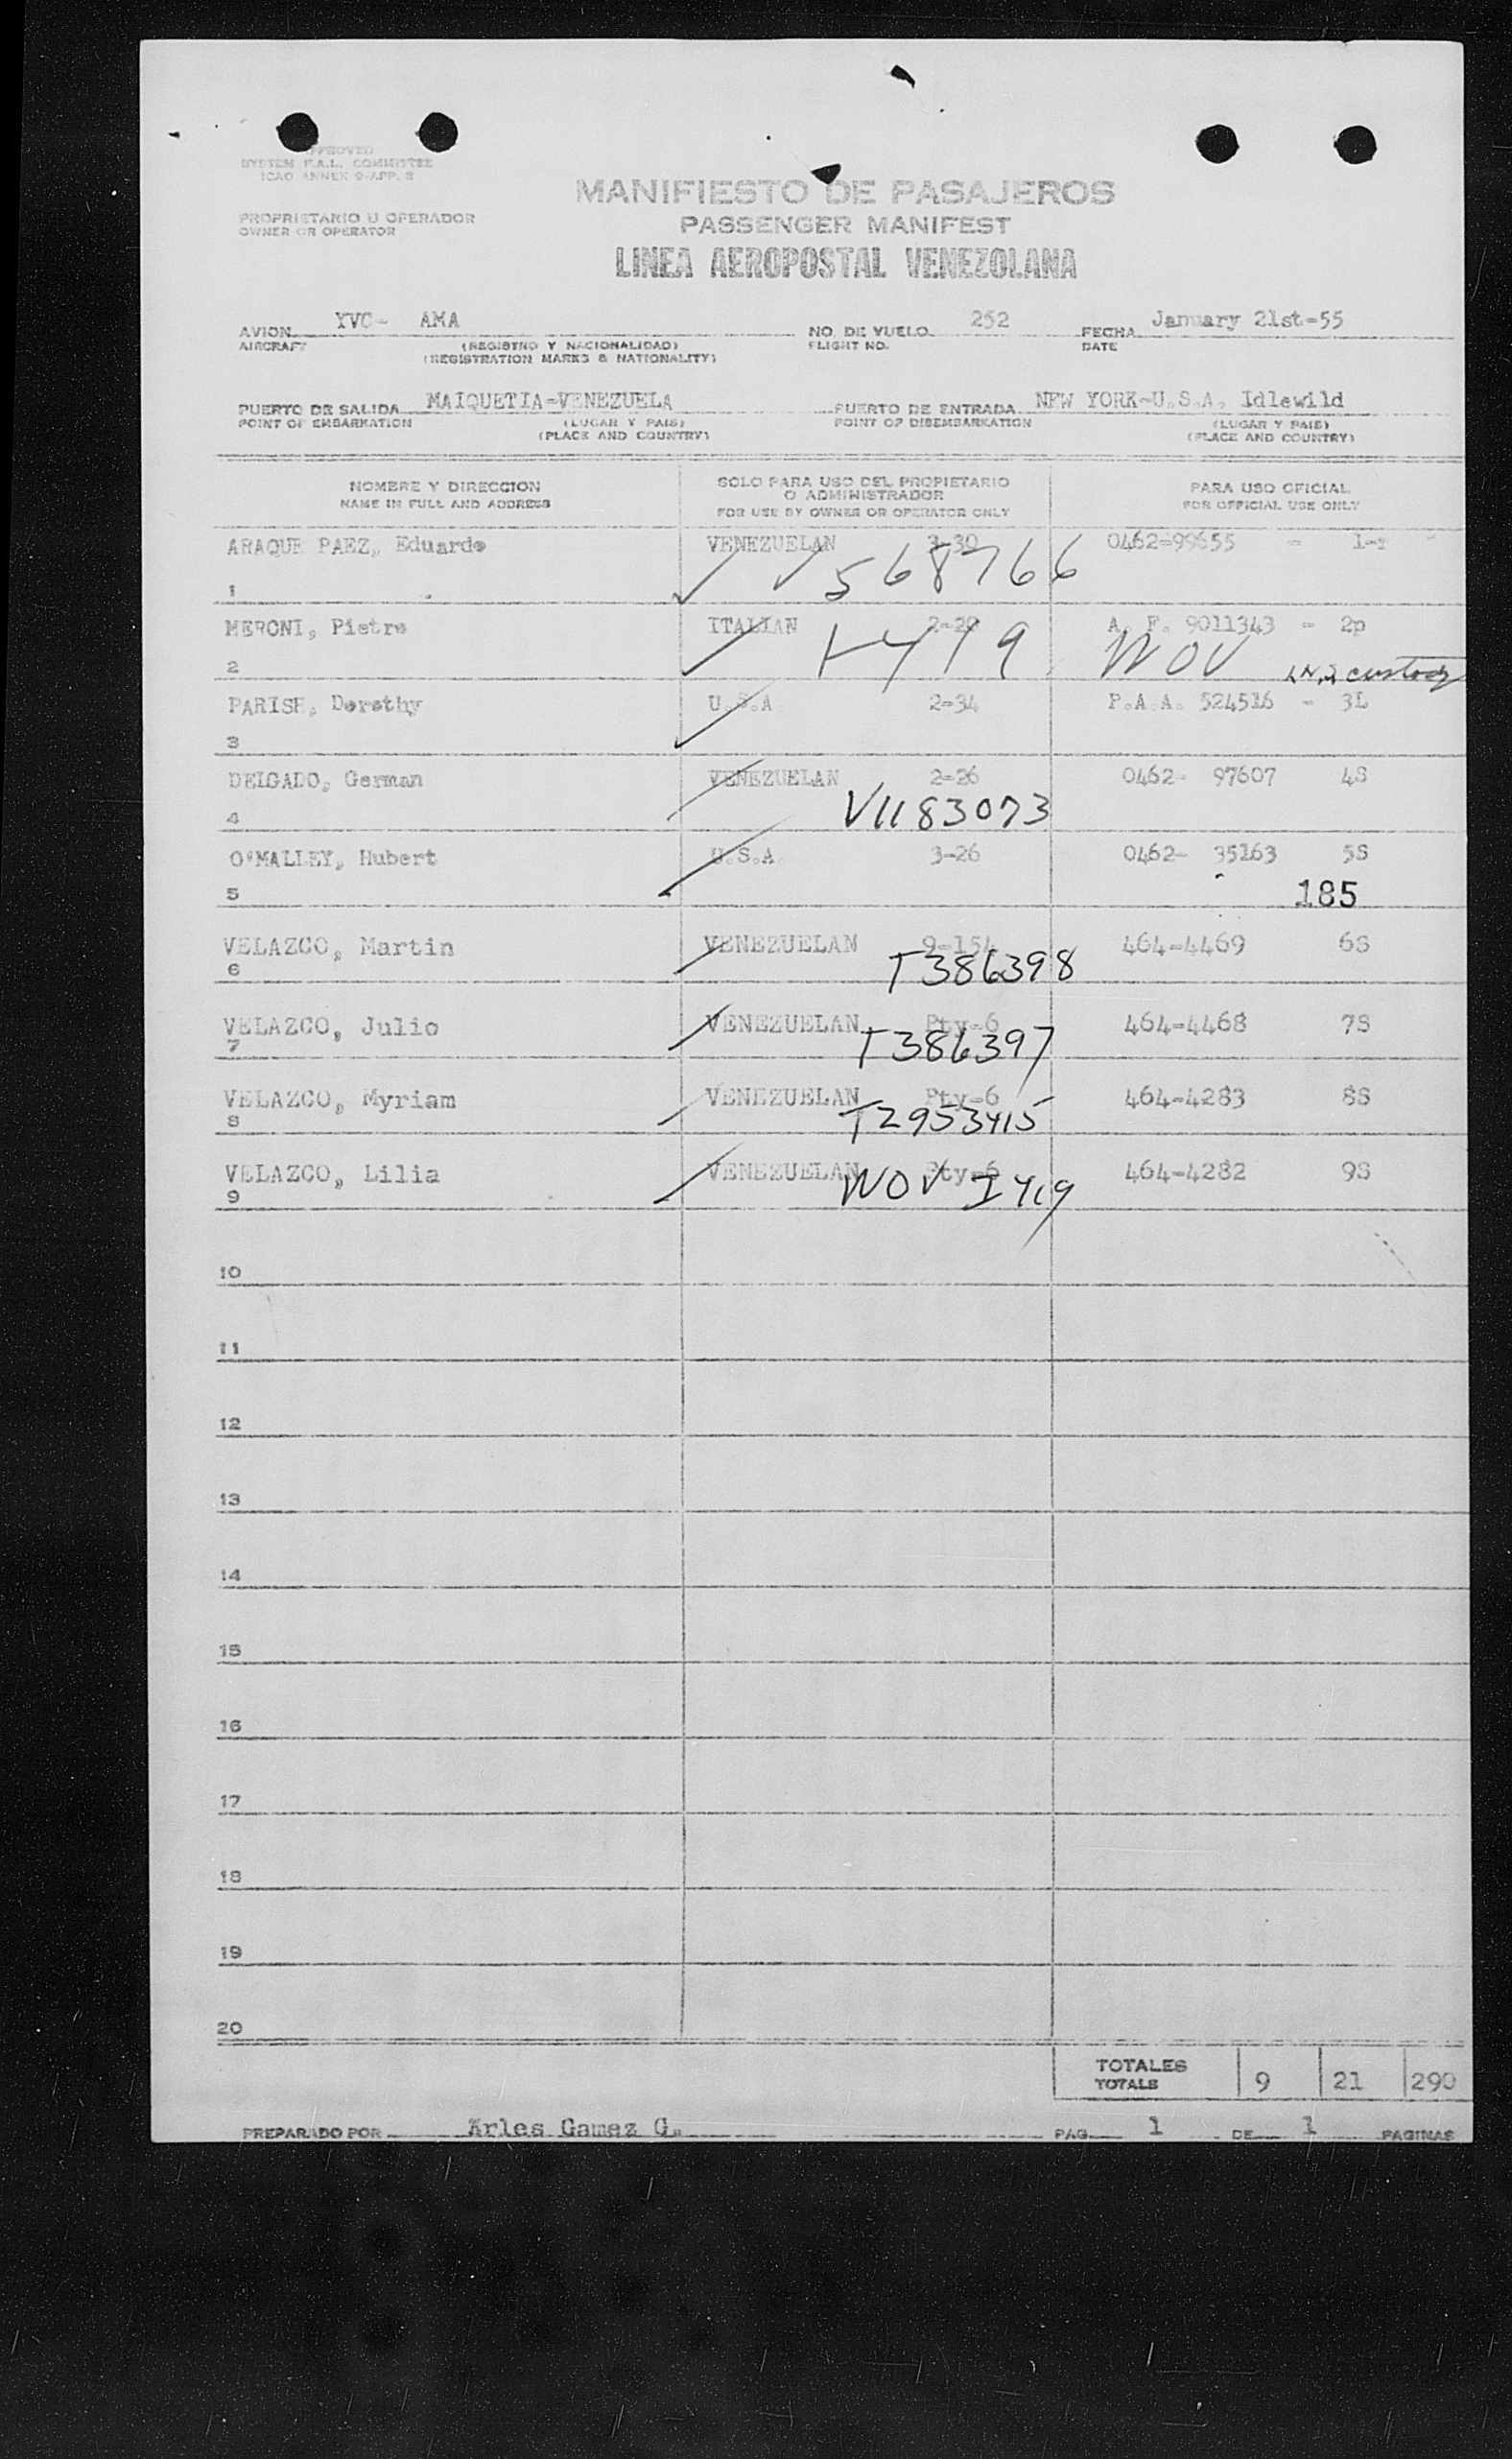 APPROVED
SYSTEM F.A.L. COMMITTEE
ICAO ANNEX 9-APP. 3
MANIFIESTO DE PASAJEROS
PROPRIETARIO U OPERADOR
OWNER OR OPERATOR
PASSENGER MANIFEST
LINEA AEROPOSTAL VENEZOLANA
AVION YVC- AMA NO. DE VUELO 252 FECHA January 21st-55
AIRCRAFT (REGISTRO Y NACIONALIDAD) FLIGHT NO. DATE
(REGISTRATION MARKS & NATIONALITY)
PUERTO DE SALIDA MAIQUETIA-VENEZUELA PUERTO DE ENTRADA NEW YORK-U.S.A, Idlewild
POINT OF EMBARKATION (LUGAR Y PAIS) POINT OF DISEMBARKATION (LUGAR Y PAIS)
(PLACE AND COUNTRY) (PLACE AND COUNTRY)
NOMBRE Y DIRECCION SOLO PARA USO DEL PROPIETARIO PARA USO OFICIAL
O ADMINISTRADOR
NAME IN FULL AND ADDRESS FOR USE BY OWNER OR OPERATOR ONLY FOR OFFICIAL USE ONLY
ARAQUE PAEZ, Eduardo VENEZUELAN 3-30 0462-99655 -
1 V568766
MERONI, Pietro ITALIAN 2-20 A. F. 9011343 - 2p
2 I-419 WOV custody
PARISH, Dorothy U.S.A 2-34 P.A.A. 524516 - 3L
3
DELGADO, German VENEZUELAN 2-26 0462- 97607 4S
4 V1183073
O'MALLEY, Hubert U.S.A. 3-26 0462- 35163 5S
5 185
VELAZCO, Martin VENEZUELAN 9-154 464-4469 6S
6 T386398
VELAZCO, Julio VENEZUELAN Pty-6 464-4468 7S
7 T386397
VELAZCO, Myriam VENEZUELAN Pty-6 464-4283 8S
8 T2953415
VELAZCO, Lilia VENEZUELAN Pty-6 464-4282 9S
9 WOV I 419
10
11
12
13
14
15
16
17
18
19
20
TOTALES 9 21 290
TOTALS
PREPARADO POR Arles Gamez G. PAG. 1 DE 1 PAGINAS